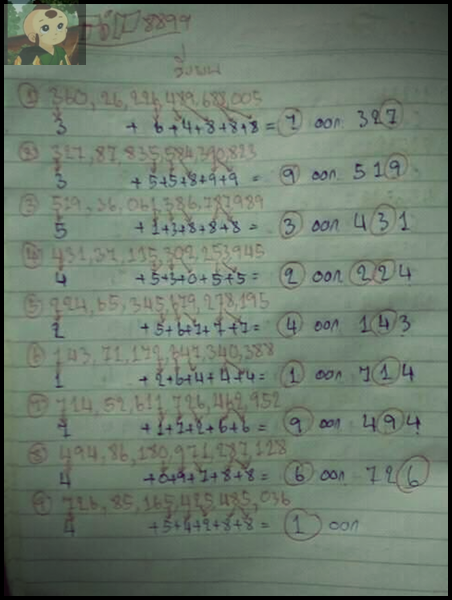 8899
วิ่งบน
① 360,26,226,489,688,005
3 +6+4+8+8+8= ⑦ ออก 327
② 327,87,835,584,390,823
3 +5+5+8+9+9= ⑨ ออก 519
③ 519,36,061,386,787,989
5 +1+3+8+8+8= ③ ออก 431
④ 431,37,115,302,253,945
4 +5+3+0+5+5= ② ออก 224
⑤ 224,65,345,679,278,195
2 +5+6+7+7+7= ④ ออก 143
⑥ 143,71,172,647,340,388
1 +2+6+4+4+4= ① ออก 714
⑦ 714,52,611,726,462,952
7 +1+7+2+6+6= ⑨ ออก 494
⑧ 494,86,180,971,287,128
4 +0+9+7+8+8= ⑥ ออก 726
⑨ 726,85,165,425,485,036
7 +5+4+2+8+8= ① ออก